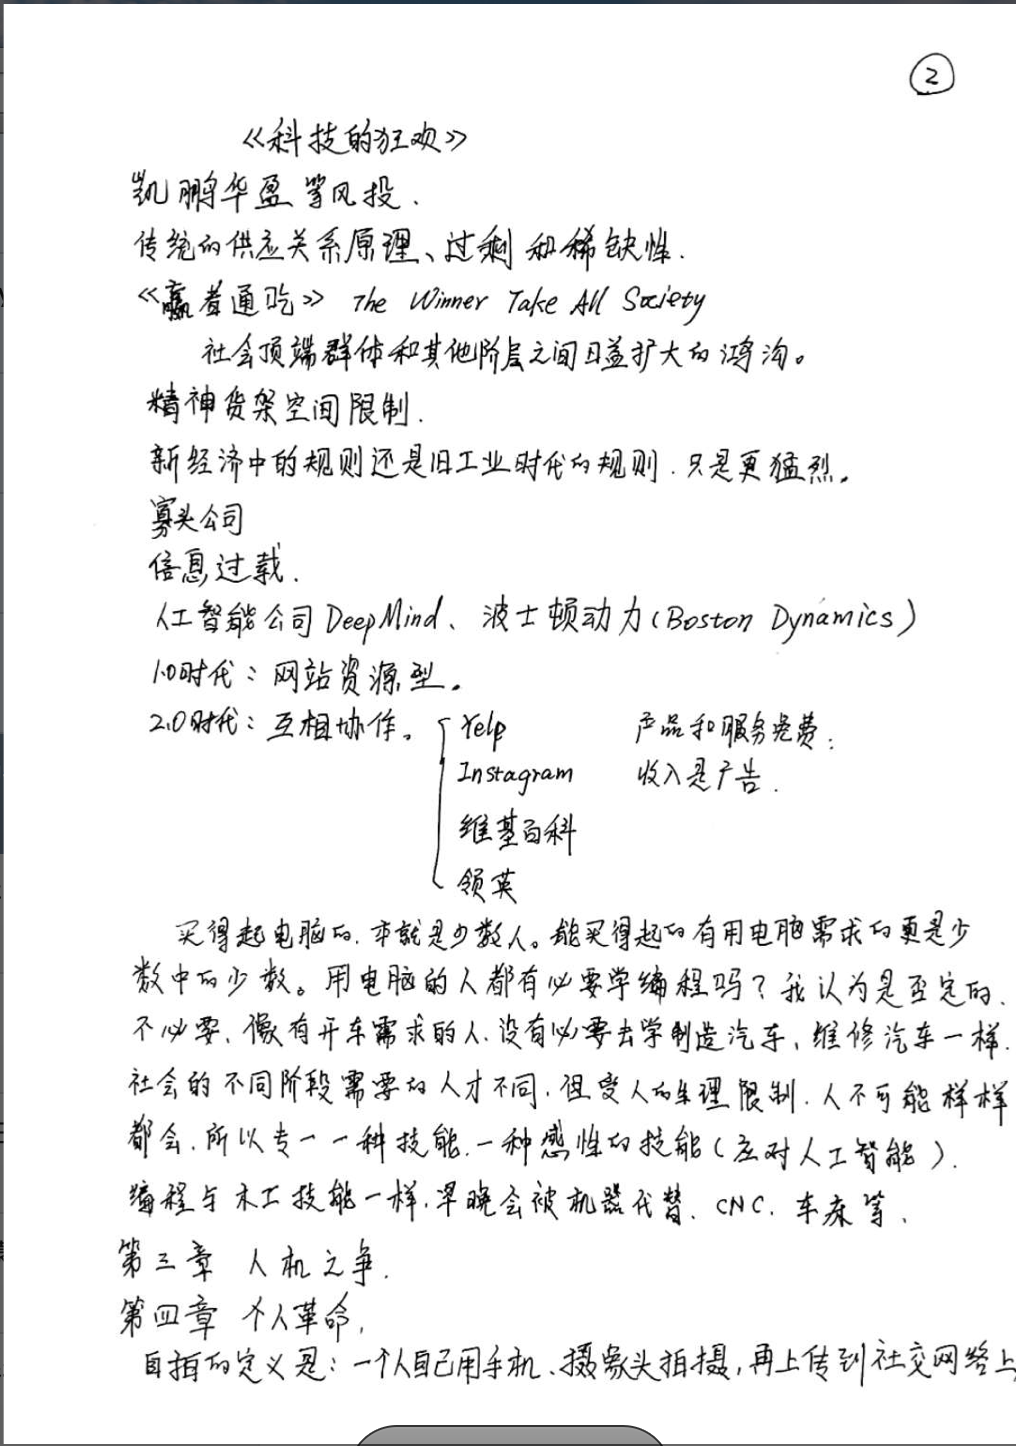 ②
《科技的狂欢》
凯鹏华盈等风投.
传统的供应关系原理、过剩和稀缺性.
《赢者通吃》 The Winner Take All Society
社会顶端群体和其他阶层之间日益扩大的鸿沟。
精神货架空间限制.
新经济中的规则还是旧工业时代的规则.只是更猛烈。
寡头公司
信息过载.
人工智能公司DeepMind、波士顿动力(Boston Dynamics)
1.0时代:网站资源型。
2.0时代:互相协作。 Yelp 产品和服务免费;
Instagram 收入是广告.
维基百科
领英
买得起电脑的.本就是少数人。能买得起的有用电脑需求的更是少
数中的少数。用电脑的人都有必要学编程吗?我认为是否定的、
不必要.像有开车需求的人.没有必要去学制造汽车、维修汽车一样.
社会的不同阶段需要的人才不同.但受人的生理限制.人不可能样样
都会.所以专一一种技能.一种感性的技能(应对人工智能).
编程与木工技能一样.早晚会被机器代替.CNC.车床等.
第三章 人机之争.
第四章 个人革命.
自拍的定义是:一个人自己用手机、摄象头拍摄,再上传到社交网络上